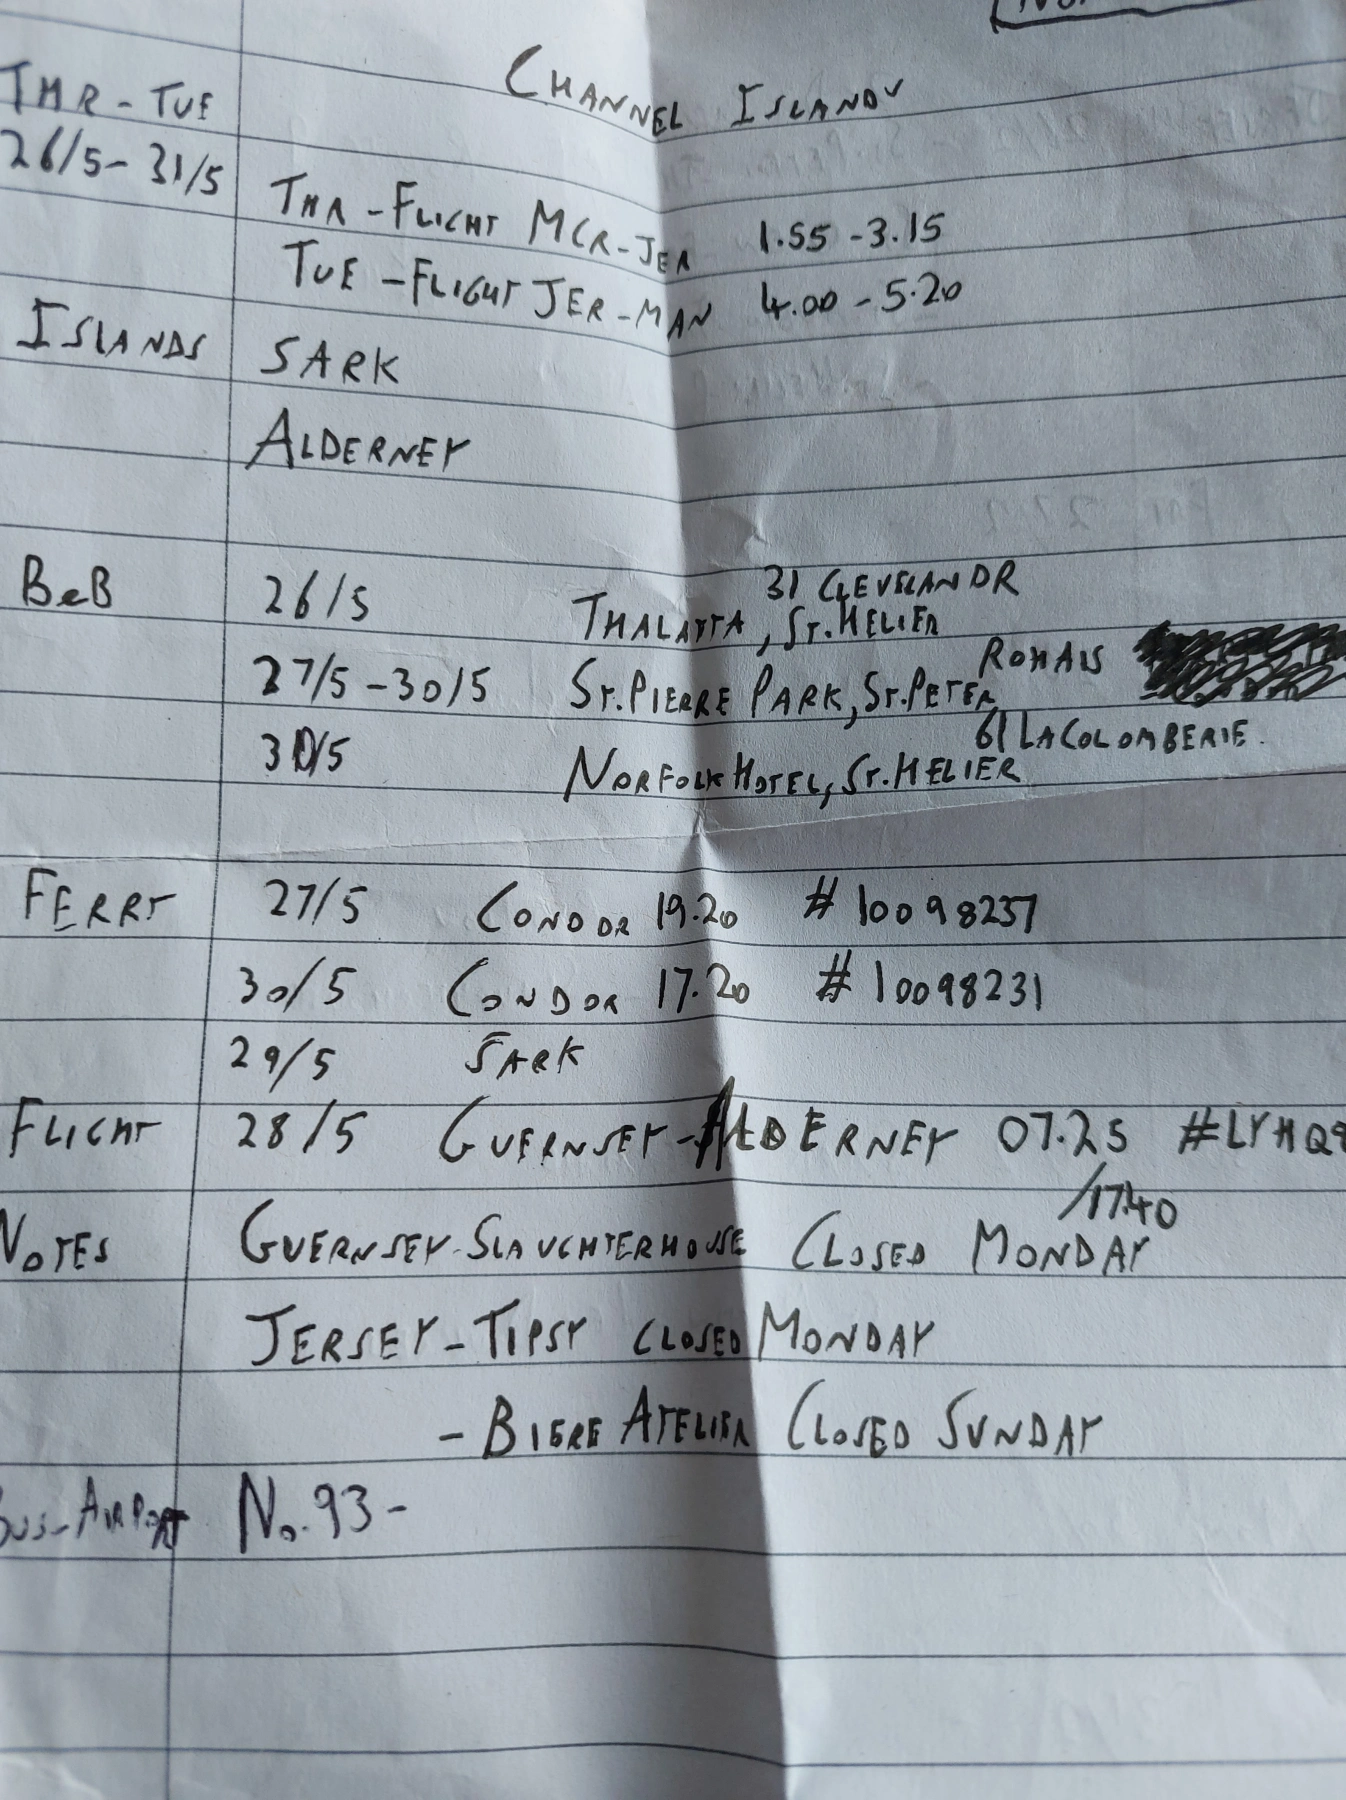 CHANNEL ISLANDS
THR - TUE
26/5 - 31/5
THR - FLIGHT MCR - JER 1.55 - 3.15
TUE - FLIGHT JER - MAN 4.00 - 5.20
ISLANDS SARK
ALDERNEY
B&B 26/5 THALATTA, ST. HELIER 31 CLEVELAND R
27/5 - 30/5 ST. PIERRE PARK, ST. PETER ROHAIS
30/5 NORFOLK HOTEL, ST. HELIER 61 LA COLOMBERIE.
FERRY 27/5 CONDOR 19.20 # 10098237
30/5 CONDOR 17.20 # 10098231
29/5 SARK
FLIGHT 28/5 GUERNSEY - ALDERNEY 07.25 /17.40
NOTES GUERNSEY - SLAUGHTERHOUSE CLOSED MONDAY
JERSEY - TIPSY CLOSED MONDAY
- BIERE ATELIER CLOSED SUNDAY
BUS - AIRPORT No. 93 -